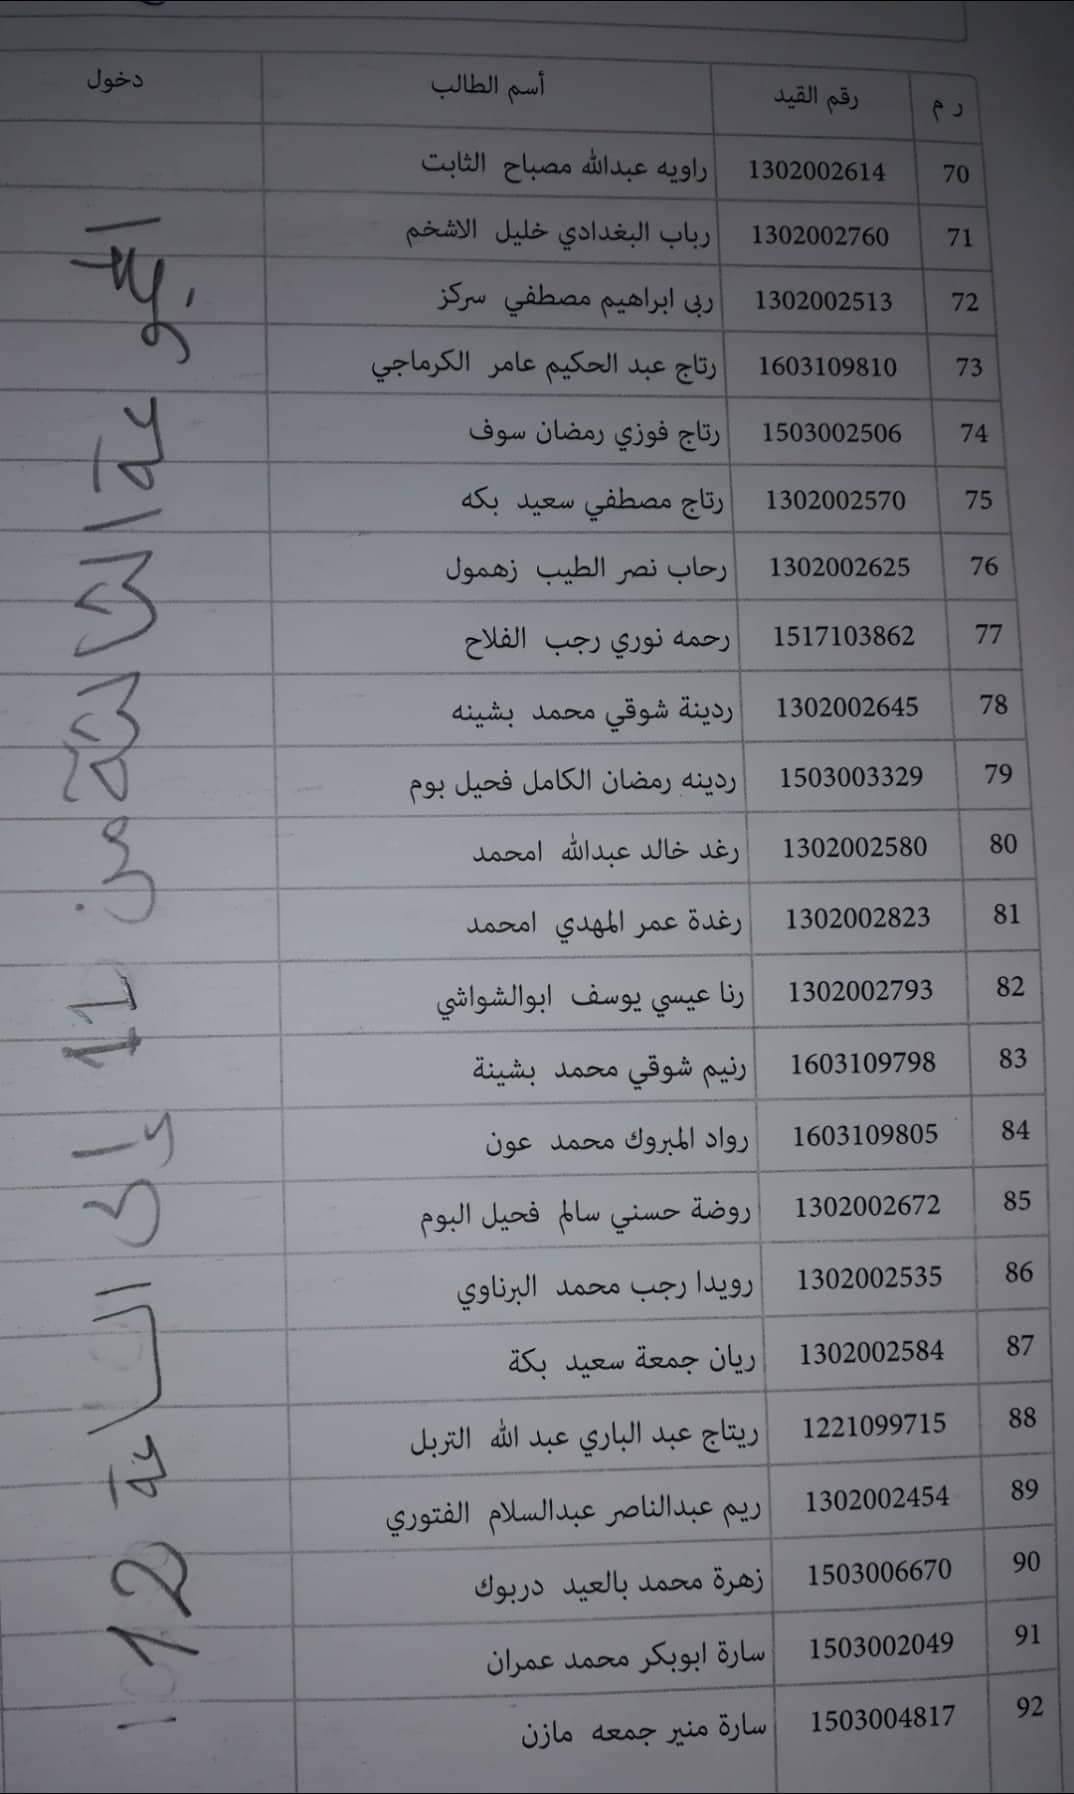 ر م رقم القيد أسم الطالب دخول
70 1302002614 راويه عبدالله مصباح الثابت
71 1302002760 رباب البغدادي خليل الاشخم
72 1302002513 ربى ابراهيم مصطفي سركز
73 1603109810 رتاج عبد الحكيم عامر الكرماجي
74 1503002506 رتاج فوزي رمضان سوف
75 1302002570 رتاج مصطفي سعيد بكه
76 1302002625 رحاب نصر الطيب زهمول
77 1517103862 رحمه نوري رجب الفلاح
78 1302002645 ردينة شوقي محمد بشينه
79 1503003329 ردينه رمضان الكامل فحيل بوم
80 1302002580 رغد خالد عبدالله امحمد
81 1302002823 رغدة عمر المهدي امحمد
82 1302002793 رنا عيسي يوسف ابوالشواشي
83 1603109798 رنيم شوقي محمد بشينة
84 1603109805 رواد المبروك محمد عون
85 1302002672 روضة حسني سالم فحيل البوم
86 1302002535 رويدا رجب محمد البرناوي
87 1302002584 ريان جمعة سعيد بكة
88 1221099715 ريتاج عبد الباري عبد الله التربل
89 1302002454 ريم عبدالناصر عبدالسلام الفتوري
90 1503006670 زهرة محمد بالعيد دربوك
91 1503002049 سارة ابوبكر محمد عمران
92 1503004817 سارة منير جمعه مازن
المجموعة الثالثة من 11 الى الساعة 12